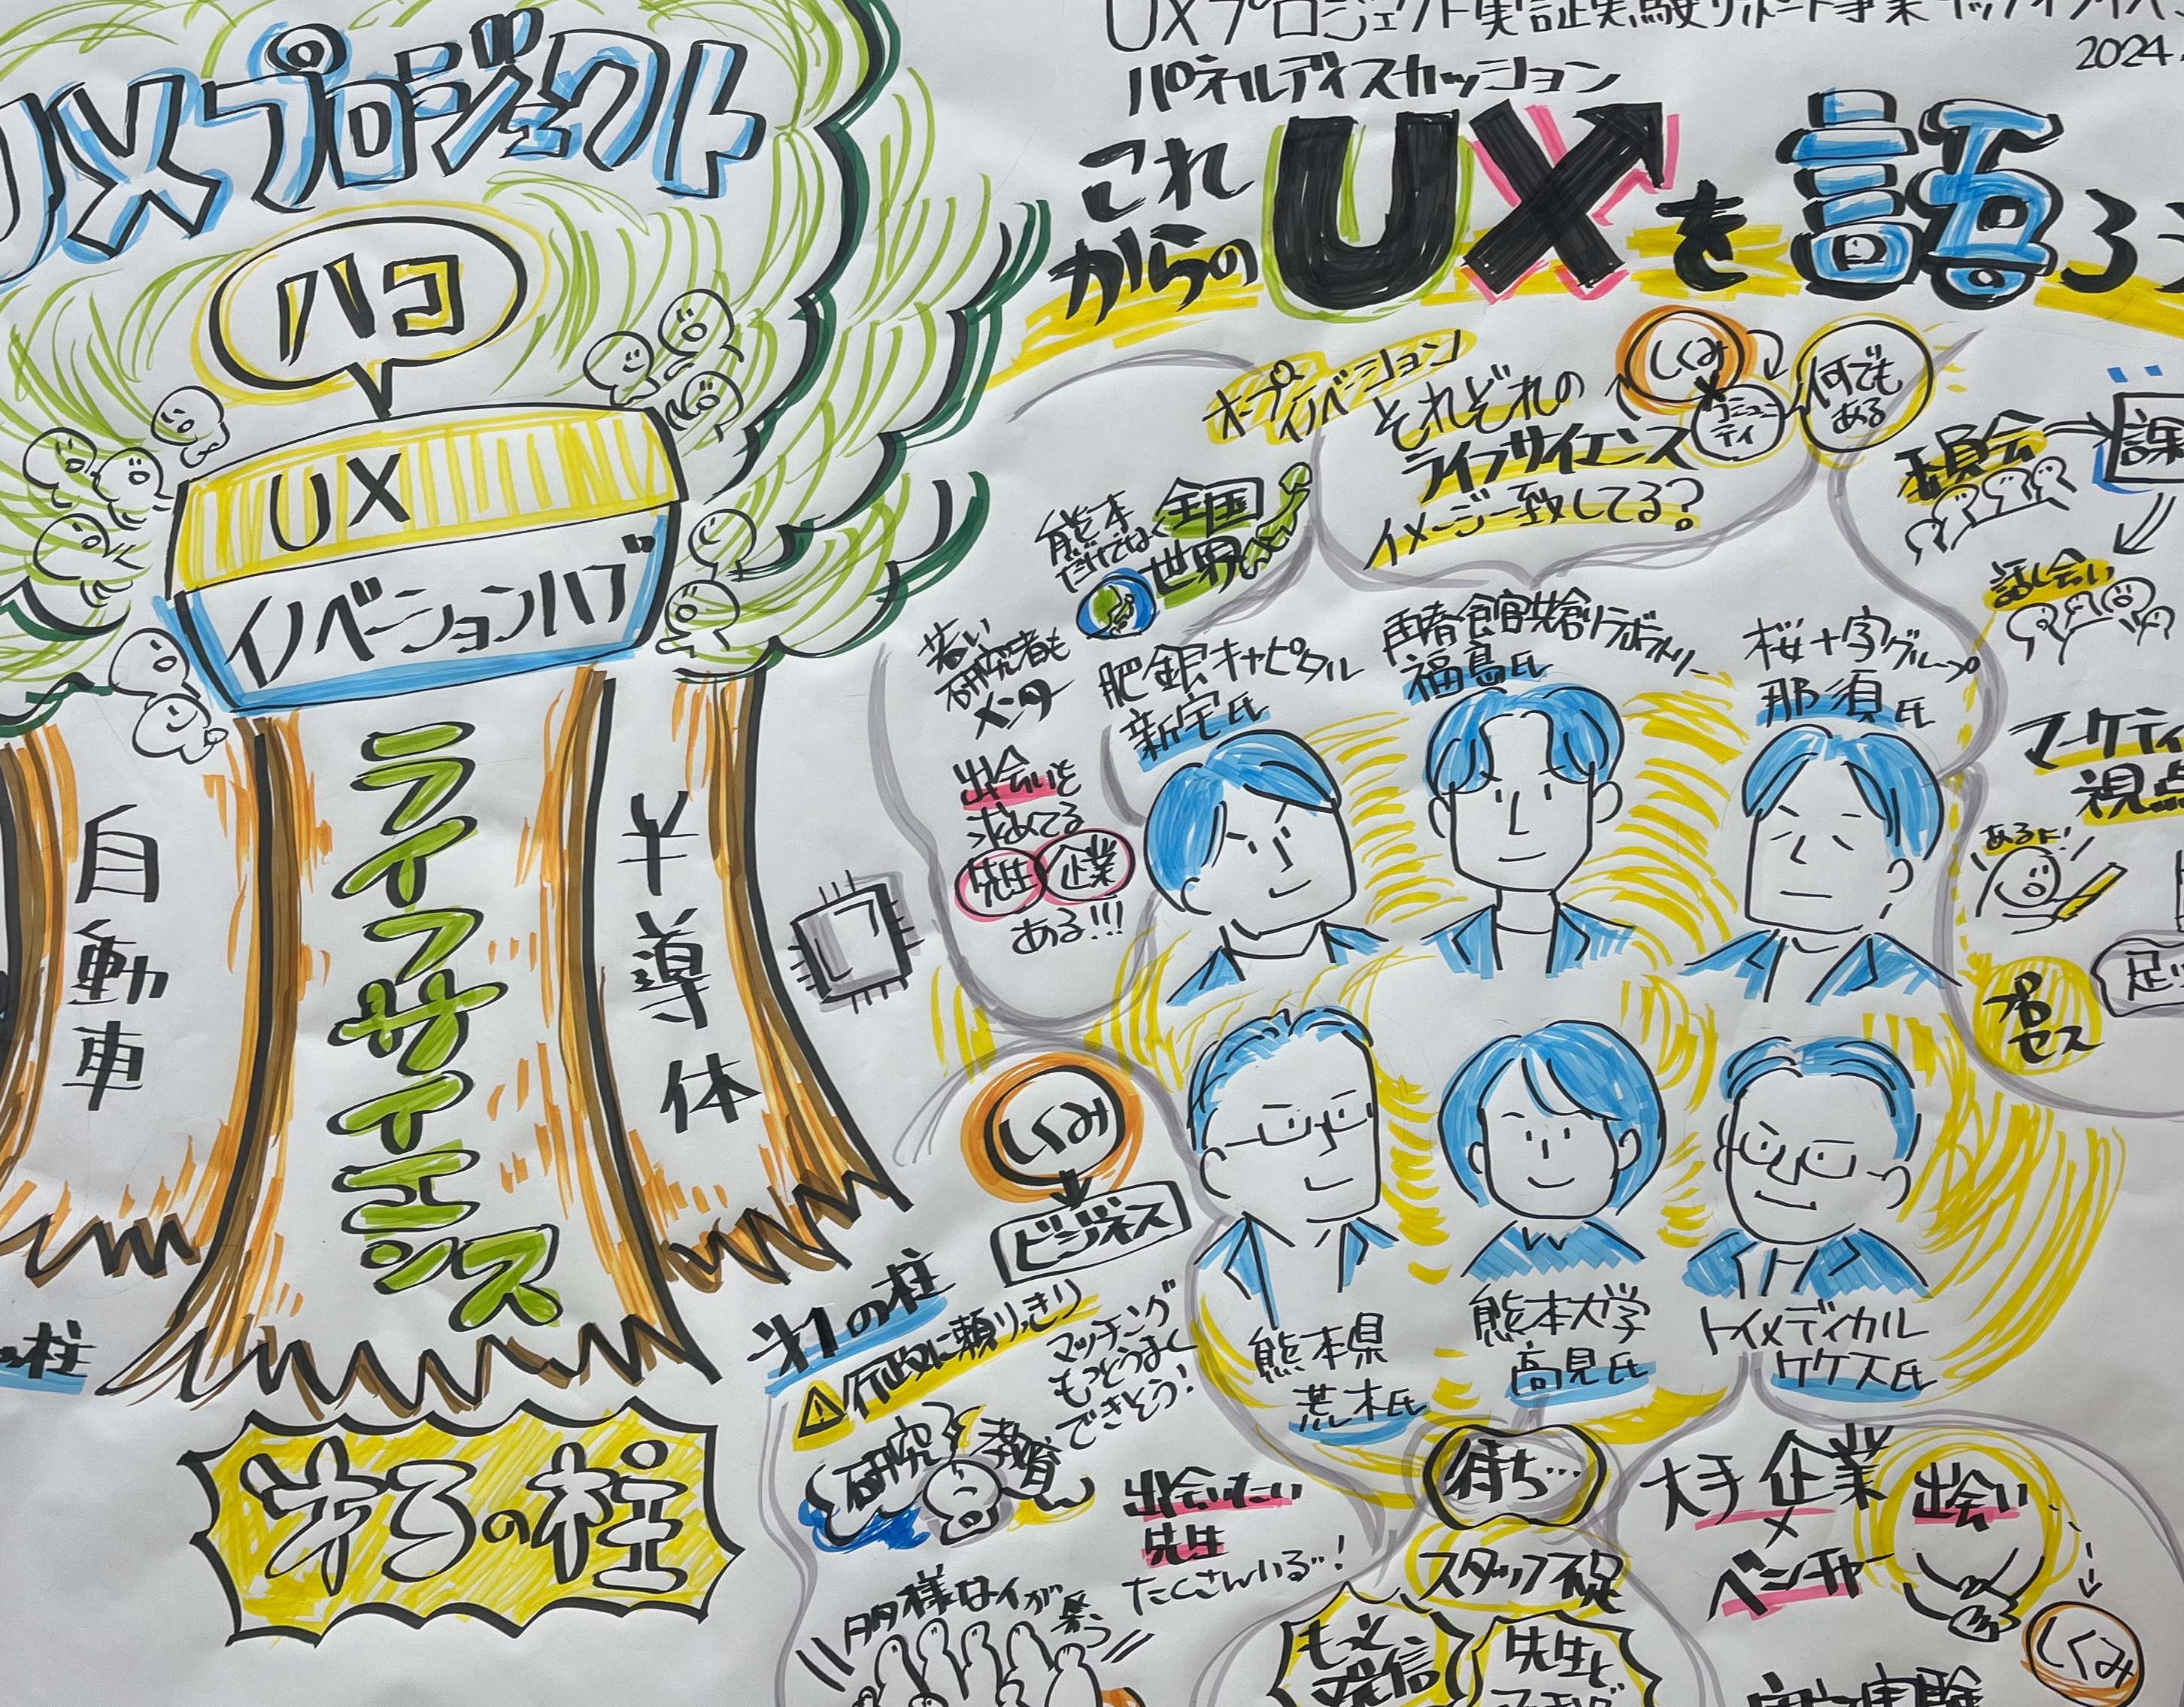 UXプロジェクト
ハコ
UX
イノベーションハブ
自動車
ライフサイエンス
半導体
柱
才1の柱
才3の柱
UXプロジェクト実証実験サポート事業
2024.
パネルディスカッション
これ
からのUXを語ろう
オープン
イノベーション
それぞれの
ライフサイエンス
イメージ一致してる?
しくみ
×
コミュニティ
何でも
ある
熊本
だけでなく全国
世界
若い
研究者も
メンター
出会いを
求めてる
先生
企業
ある!!!
肥銀キャピタル
新宅氏
再春館共創ラボラトリー
福島氏
桜十字グループ
那須氏
委員会
課
話し合い
マーケティ
視点
あるよ!
プロ
セス
足り
しくみ
ビジネス
熊本県
荒木氏
熊本大学
高見氏
トイメディカル
ケケ下氏
行政に頼りっきり
マッチング
もっとうまく
できそう!
研究
教育
出会いたい
先生
たくさんいる…!
多様な人が
集う
待ち…
スタッフ不足
もっと
発信
先生と
大手企業
×
ベンチャー
出会い
しくみ
実証実験